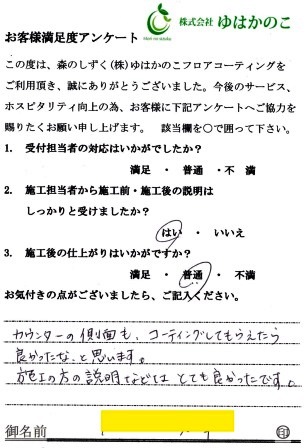 株式会社 ゆはかのこ
Mori no sizuku
お客様満足度アンケート
この度は、森のしずく(株)ゆはかのこフロアコーティングを
ご利用頂き、誠にありがとうございました。今後のサービス、
ホスピタリティ向上の為、お客様に下記アンケートへご協力を
賜りたくお願い申し上げます。 該当欄を○で囲って下さい。
1. 受付担当者の対応はいかがでしたか?
満足 ・ 普通 ・ 不 満
2. 施工担当者から施工前・施工後の説明は
しっかりと受けましたか?
はい ・ いいえ
3. 施工後の仕上がりはいかがですか?
満足 ・ 普通 ・ 不満
お気付きの点がございましたら、ご記入ください。
カウンターの側面も、コーティングしてもらえたら
良かったな、と思います。
施工の方の説明などは とても良かったです。
御名前
印